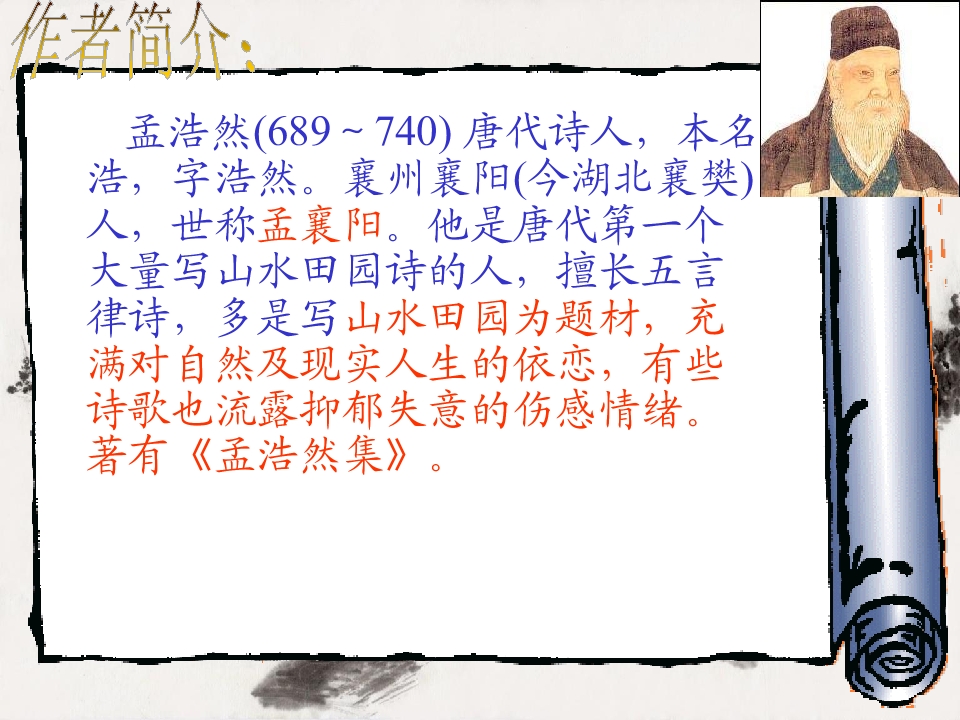 作者简介：
孟浩然(689～740) 唐代诗人，本名
浩，字浩然。襄州襄阳(今湖北襄樊)
人，世称孟襄阳。他是唐代第一个
大量写山水田园诗的人，擅长五言
律诗，多是写山水田园为题材，充
满对自然及现实人生的依恋，有些
诗歌也流露抑郁失意的伤感情绪。
著有《孟浩然集》。